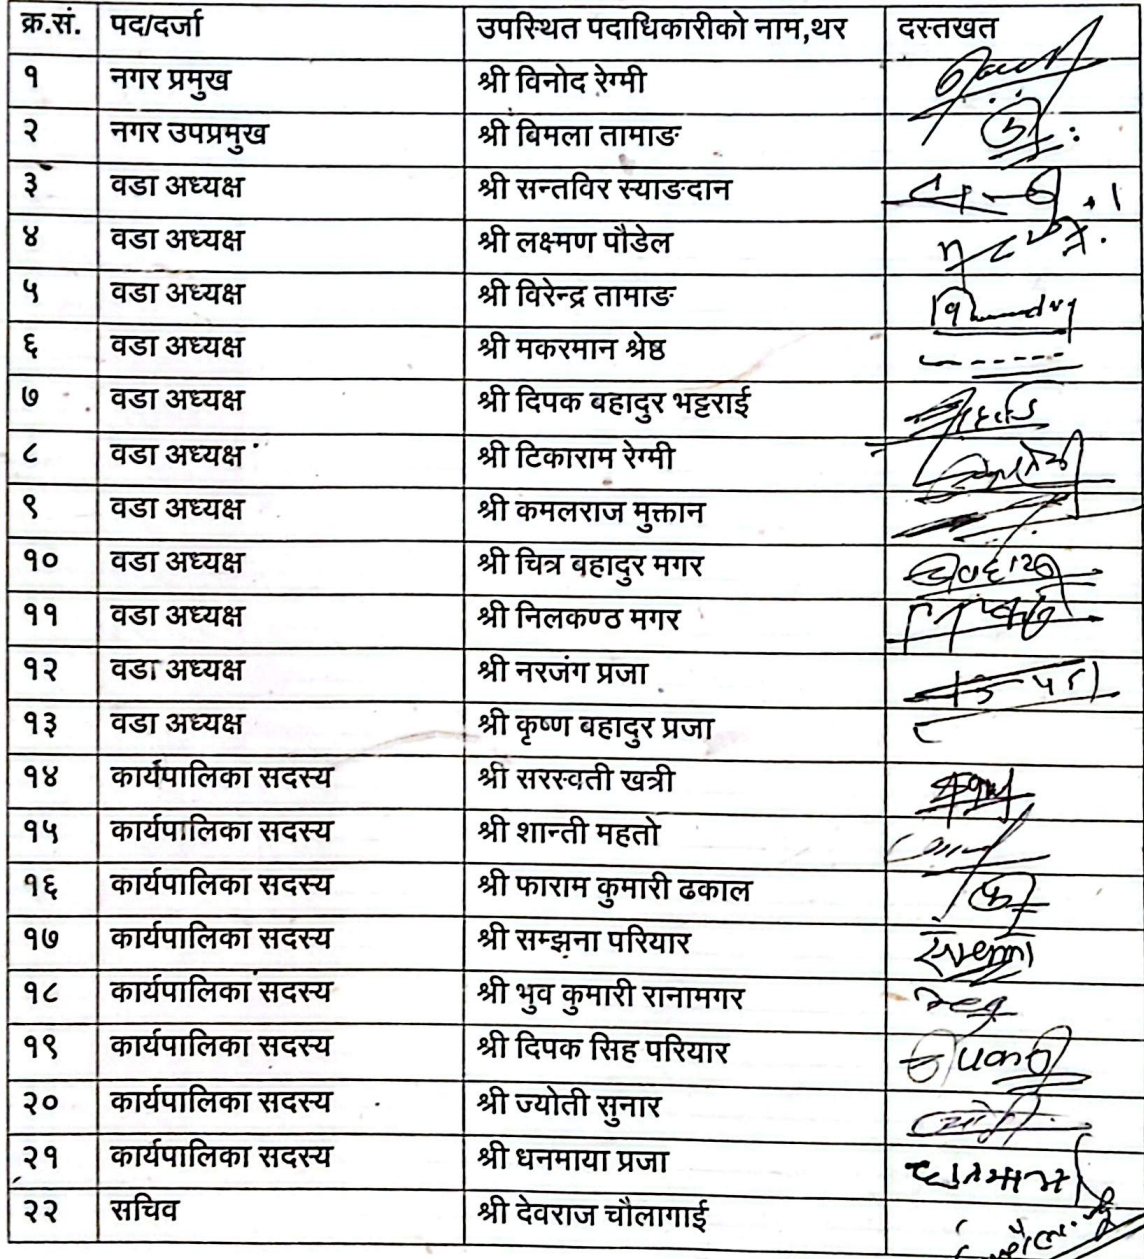 क्र.सं. पद/दर्जा उपस्थित पदाधिकारीको नाम,थर दस्तखत
१ नगर प्रमुख श्री विनोद रेग्मी
२ नगर उपप्रमुख श्री बिमला तामाङ
३ वडा अध्यक्ष श्री सन्तविर स्याङदान
४ वडा अध्यक्ष श्री लक्ष्मण पौडेल
५ वडा अध्यक्ष श्री विरेन्द्र तामाङ
६ वडा अध्यक्ष श्री मकरमान श्रेष्ठ
७ वडा अध्यक्ष श्री दिपक बहादुर भट्टराई
८ वडा अध्यक्ष श्री टिकाराम रेग्मी
९ वडा अध्यक्ष श्री कमलराज मुक्तान
१० वडा अध्यक्ष श्री चित्र बहादुर मगर
११ वडा अध्यक्ष श्री निलकण्ठ मगर
१२ वडा अध्यक्ष श्री नरजंग प्रजा
१३ वडा अध्यक्ष श्री कृष्ण बहादुर प्रजा
१४ कार्यपालिका सदस्य श्री सरस्वती खत्री
१५ कार्यपालिका सदस्य श्री शान्ती महतो
१६ कार्यपालिका सदस्य श्री फाराम कुमारी ढकाल
१७ कार्यपालिका सदस्य श्री सम्झना परियार
१८ कार्यपालिका सदस्य श्री भुव कुमारी रानामगर
१९ कार्यपालिका सदस्य श्री दिपक सिह परियार
२० कार्यपालिका सदस्य श्री ज्योती सुनार
२१ कार्यपालिका सदस्य श्री धनमाया प्रजा
२२ सचिव श्री देवराज चौलागाई